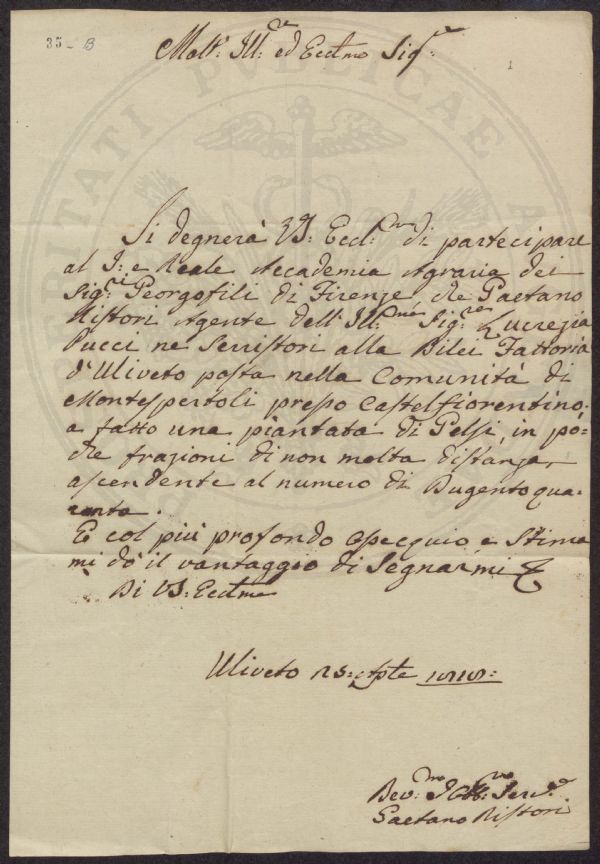 35_B
1
Molt: Ill:re ed Eccl.mo Sig.re
Si degnerà VS: Eccl.ma di partecipare
al J: e Reale Accademia Agraria dei
Sig:ri Georgofili di Firenze che Gaetano
Ristori Agente dell' Ill:me Sig:re Lucrezia
Pucci ne Serristori alla
Fattoria
d'Uliveto posta nella Comunità di
Montespertoli presso Castelfiorentino:
a fatto una piantata di Gelsi, in po=
che frazioni di non molta distanza,
ascendente al numero di Dugento qua-
ranta.
E col più profondo Ossequio, e Stima
mi dò il vantaggio di Segnarmi
Di VS: Eccl.ma
Uliveto
Dev:mo Servre
Gaetano Ristori
PUBLICAE